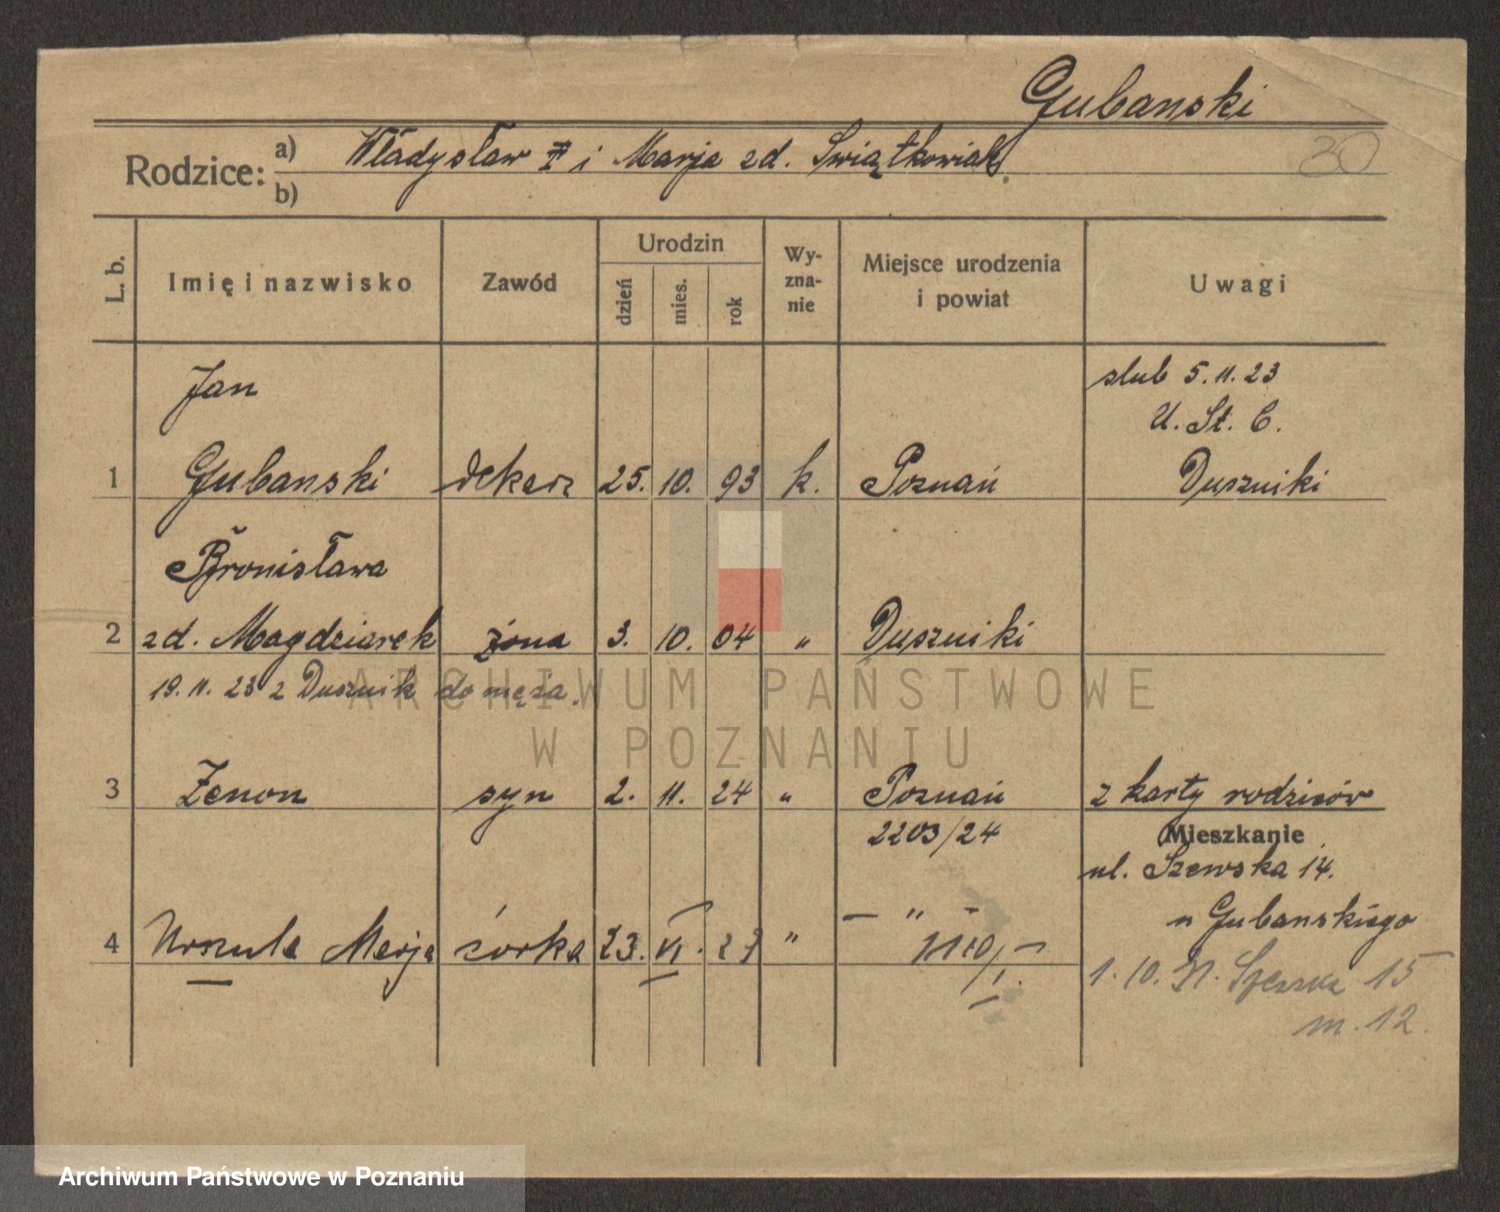 Gubanski
30
Rodzice: a) Władysław † i Marja zd. Świątkowiak.
b)
L. b. Imię i nazwisko Zawód Urodzin dzień mies. rok Wy-zna-nie Miejsce urodzenia i powiat Uwagi
Jan slub 5.11.23
U. St. C.
1 Gubanski dekarz 25. 10. 93 k. Poznań Duszniki
Bronisława
2 zd. Magdziarek żona 3. 10. 04 " Duszniki
19.11.23 z Dusznik do męża.
ARCHIWUM PAŃSTWOWE
W POZNANIU
3 Zenon syn 2. 11. 24 " Poznań z karty rodziców
2203/24 Mieszkanie
ul. Szewska 14.
u Gubanskiego
4 Urszula Marja córka 23. VI. 29 " — " —
1. 10. Szewska 15
m. 12.
Archiwum Państwowe w Poznaniu